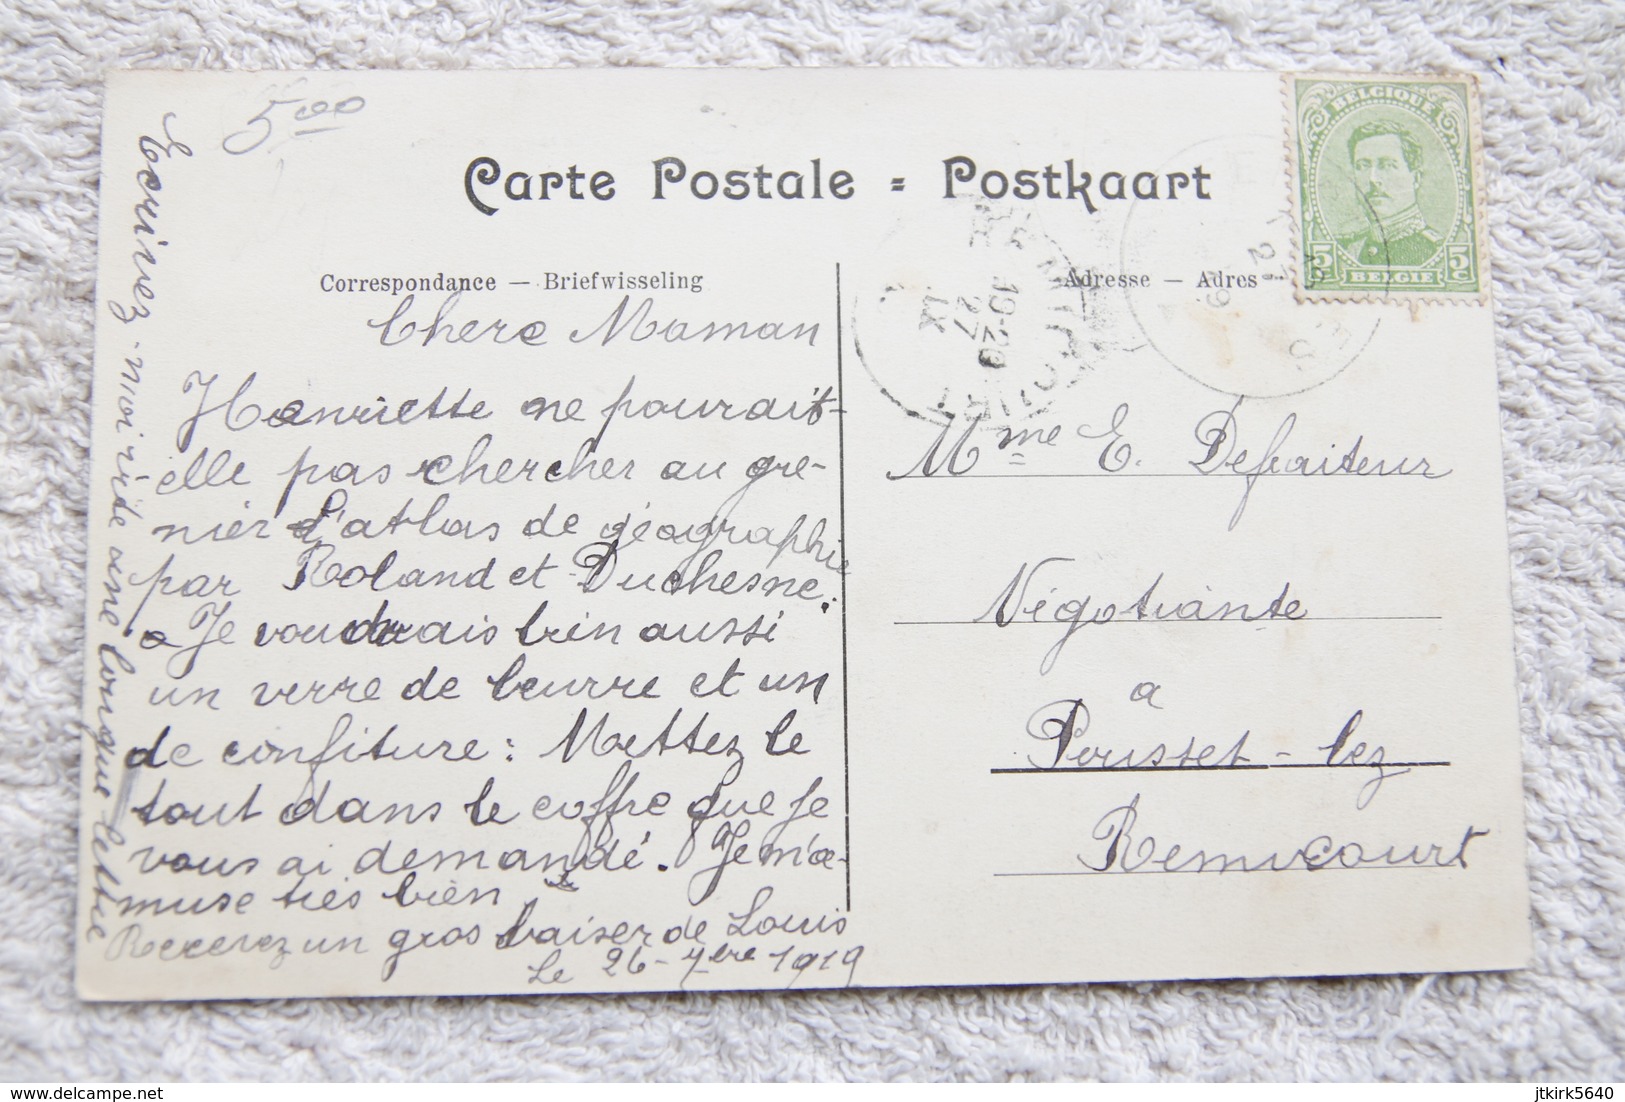 5,00
Carte Postale = Postkaart
BELGIQUE
5c 5c
BELGIE
Correspondance — Briefwisseling
Adresse — Adres
REMICOURT
19-20
27
IX
Chere Maman
Henriette ne pourait-
elle pas chercher au gre-
nier l'atlas de géographie
par Roland et Duchesne.
Je voudrais bien aussi
un verre de beurre et un
de confiture : Mettez le
tout dans le coffre que je
vous ai demandé. Je m'a-
muse très bien
Recevez un gros baiser de Louis
Le 26-7bre 1919
Ecrivez-moi vite une longue lettre
Mme E. Defraiteur
Négotiante
a
Pousset-lez
Remicourt
delcampe.net
jtkirk5640